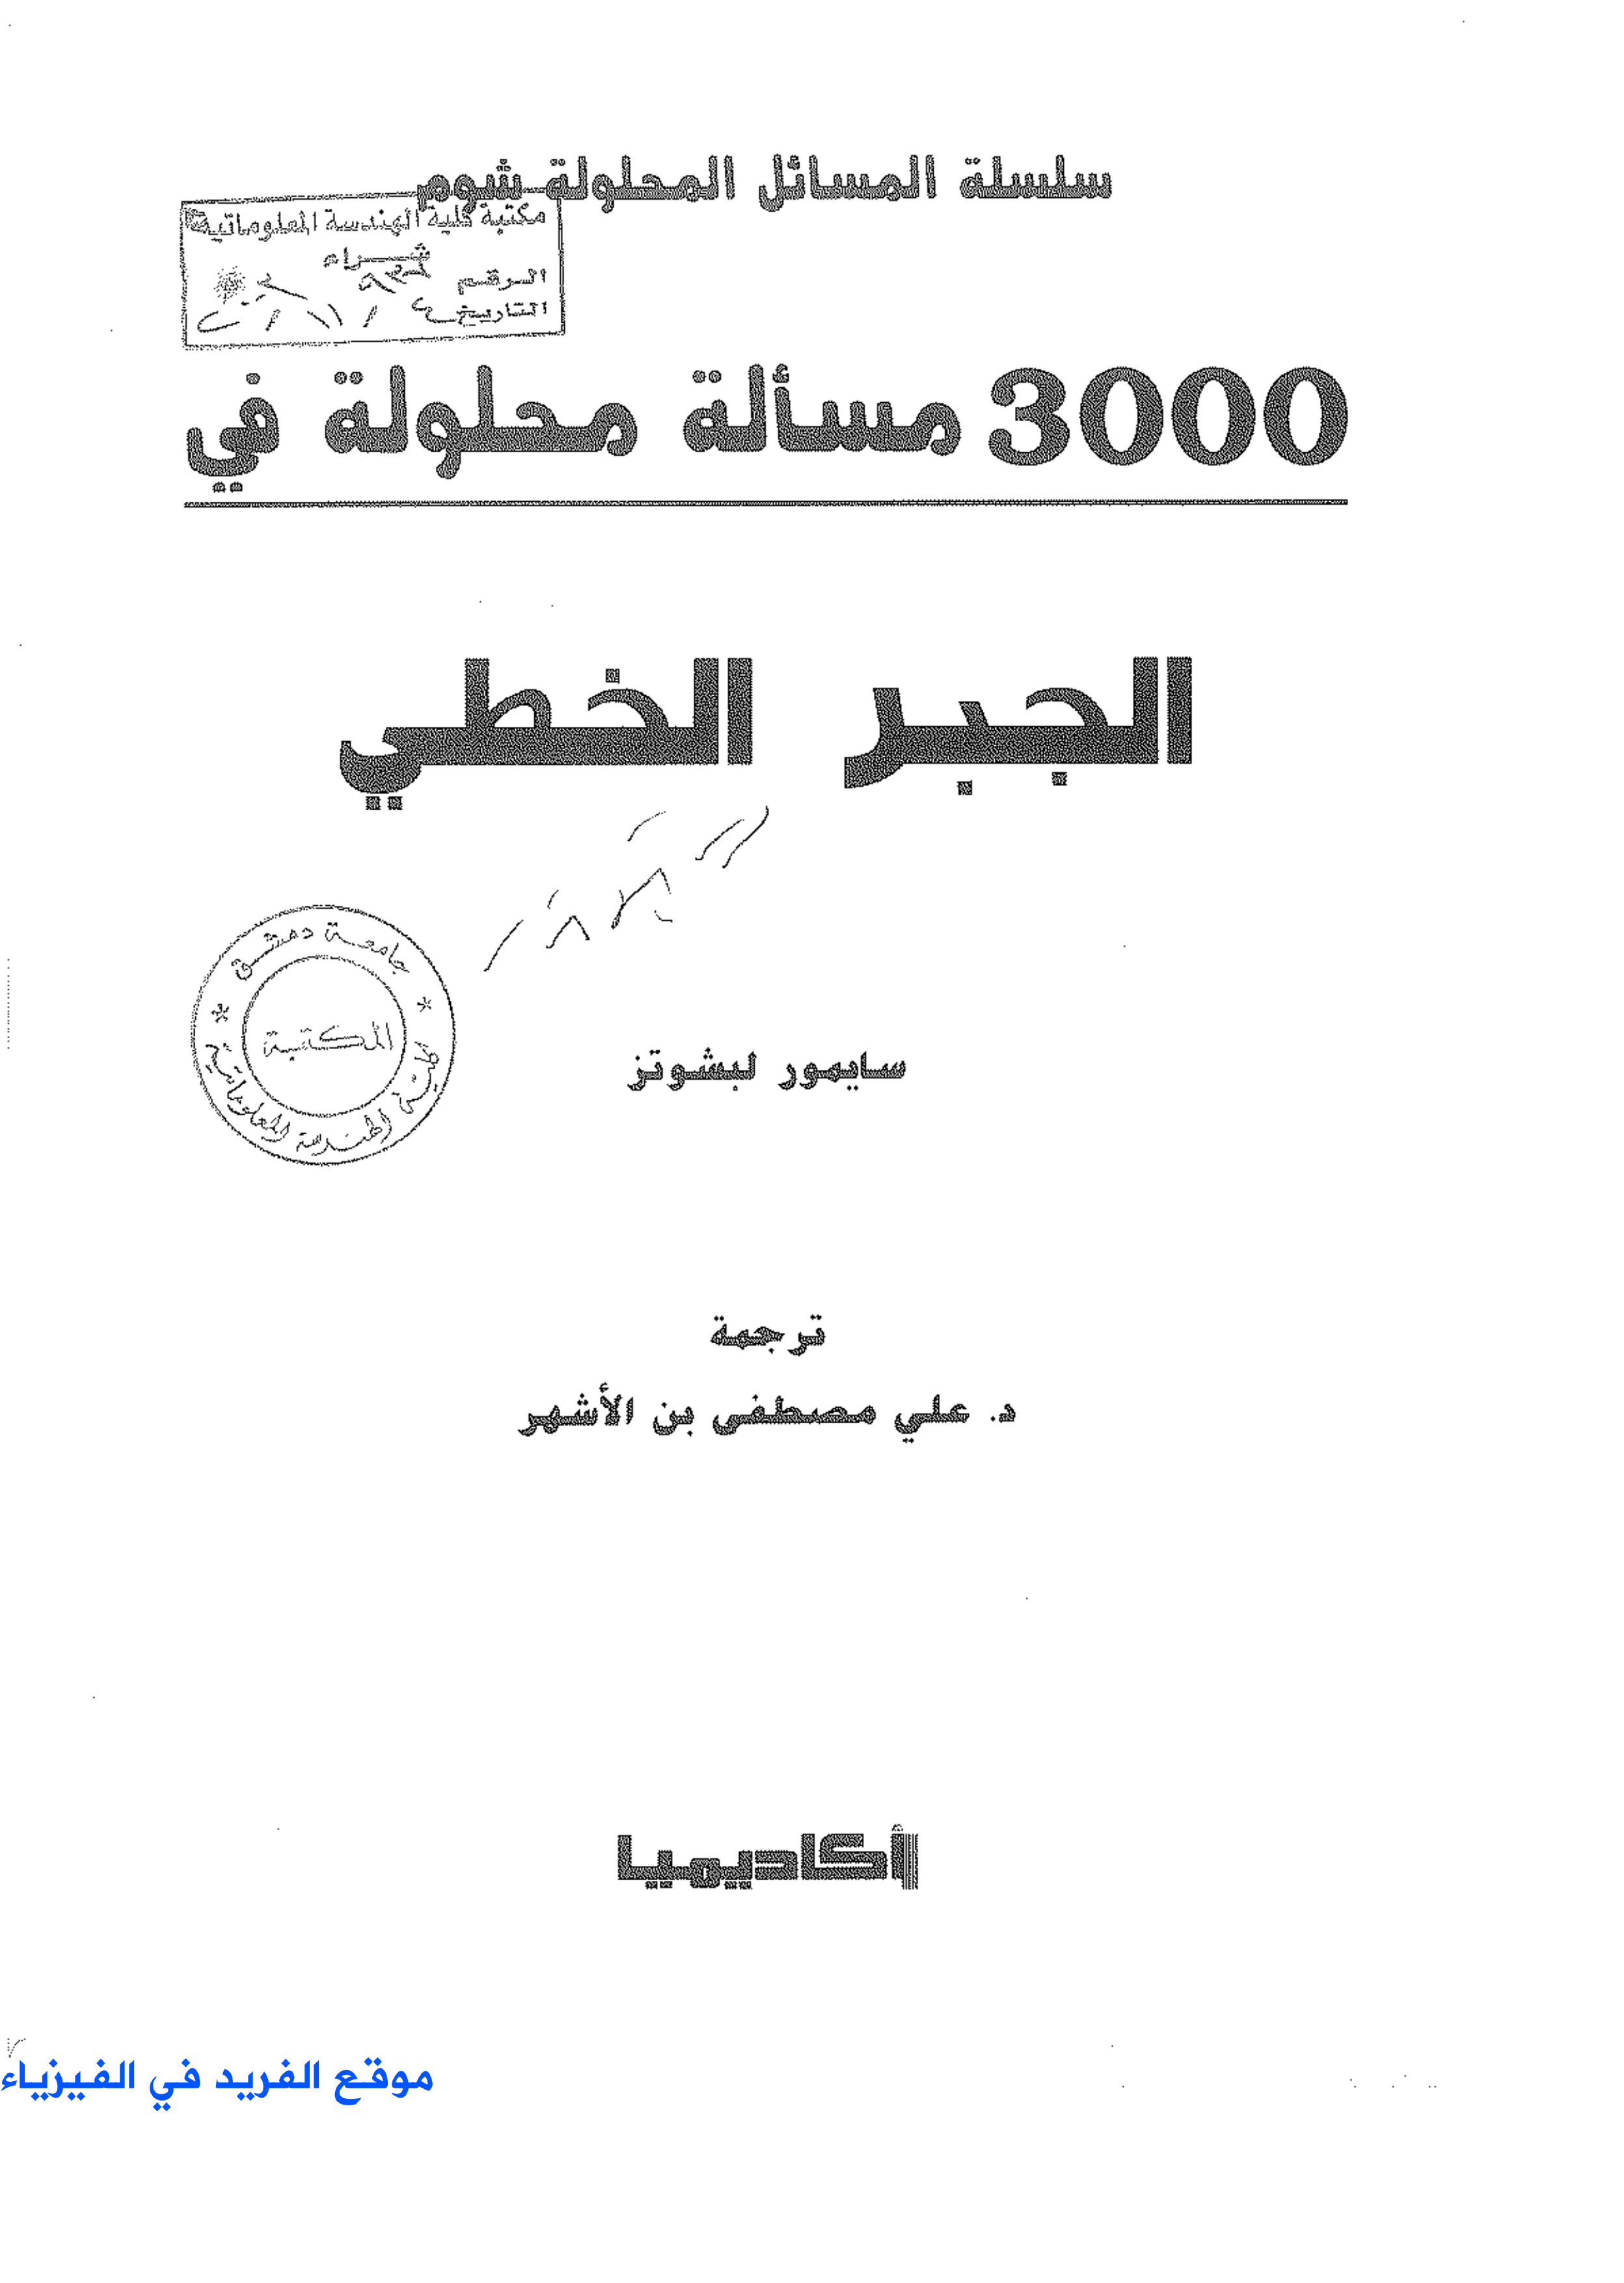 سلسلة المسائل المحلولة شوم
مكتبة كلية الهندسة المعلوماتية
شراء
الرقم
التاريخ
3000 مسألة محلولة في
الجبر الخطي
جامعة دمشق
المكتبة
كلية الهندسة المعلوماتية
سايمور لبشوتز
ترجمة
د. علي مصطفى بن الأشهر
أكاديميا
موقع الفريد في الفيزياء